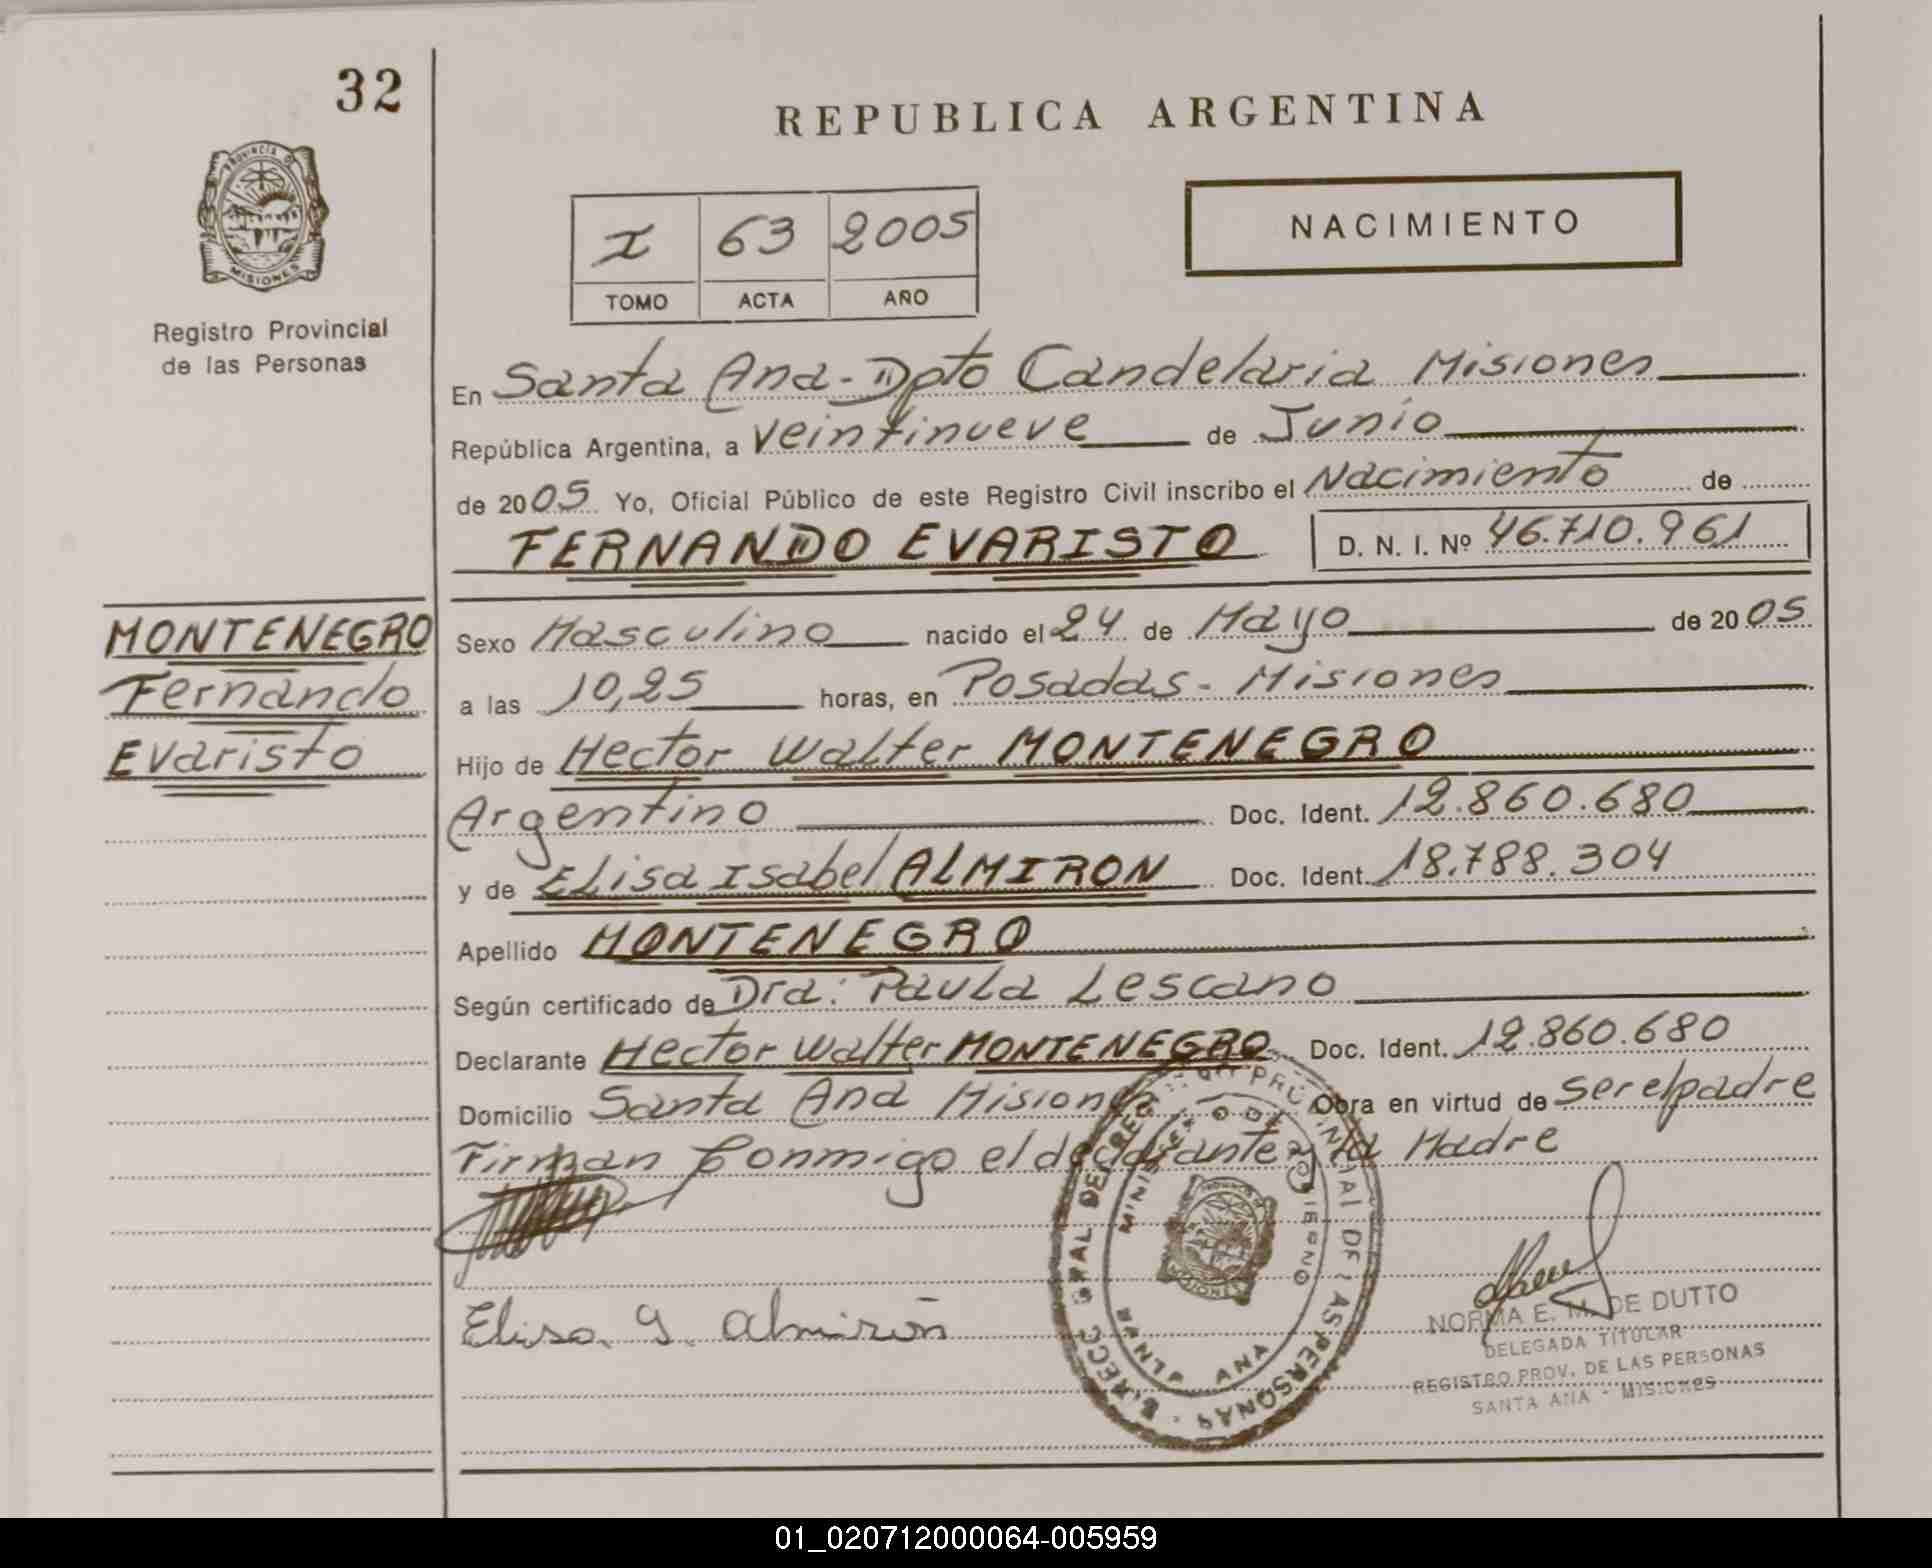 32
REPUBLICA ARGENTINA
PROVINCIA D
MISIONES
Registro Provincial
de las Personas
I 63 2005
TOMO ACTA AÑO
NACIMIENTO
En Santa Ana - Dpto Candelaria Misiones
República Argentina, a veintinueve de Junio
de 2005 Yo, Oficial Público de este Registro Civil inscribo el Nacimiento de
FERNANDO EVARISTO D. N. I. Nº 46.710.961
MONTENEGRO
Fernando
Evaristo
Sexo Masculino nacido el 24 de Mayo de 2005
a las 10,25 horas, en Posadas - Misiones
Hijo de Hector Walter MONTENEGRO
Argentino Doc. Ident. 12.860.680
y de Elisa Isabel ALMIRON Doc. Ident. 18.788.304
Apellido MONTENEGRO
Según certificado de Dra: Paula Lescano
Declarante Hector Walter MONTENEGRO Doc. Ident. 12.860.680
Domicilio Santa Ana Misiones Obra en virtud de ser el padre
Firman conmigo el declarante y la Madre
Elisa I. Almirón
PROVINCIAL DE LAS PERSONAS
ANA
MISIONES
NORMA E. M. DE DUTTO
DELEGADA TITULAR
REGISTRO PROV. DE LAS PERSONAS
SANTA ANA - MISIONES
01_020712000064-005959